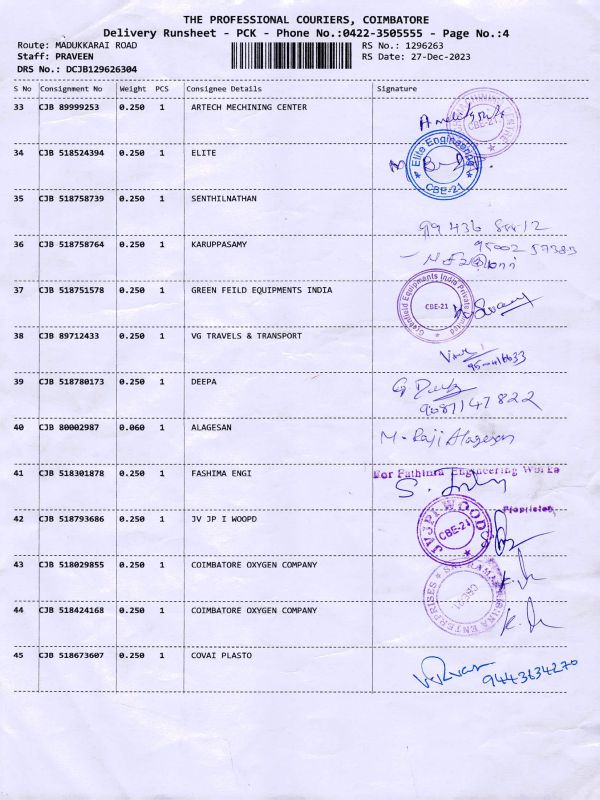 THE PROFESSIONAL COURIERS, COIMBATORE
Delivery Runsheet - PCK - Phone No.:0422-3505555 - Page No.:4
Route: MADUKKARAI ROAD RS No.: 1296263
Staff: PRAVEEN RS Date: 27-Dec-2023
DRS No.: DCJB129626304
S No Consignment No Weight PCS Consignee Details Signature
33 CJB 89999253 0.250 1 ARTECH MECHINING CENTER
CBE-21
34 CJB 518524394 0.250 1 ELITE
Elite Engineering
CBE-21
35 CJB 518758739 0.250 1 SENTHILNATHAN
36 CJB 518758764 0.250 1 KARUPPASAMY
37 CJB 518751578 0.250 1 GREEN FEILD EQUIPMENTS INDIA
Greenfield Equipments India Private Limited
CBE-21
38 CJB 89712433 0.250 1 VG TRAVELS & TRANSPORT
39 CJB 518780173 0.250 1 DEEPA
9087147822
40 CJB 80002987 0.060 1 ALAGESAN
M. Raji Alagesan
41 CJB 518301878 0.250 1 FASHIMA ENGI
For Fathima Engineering Works
Proprietor
42 CJB 518793686 0.250 1 JV JP I WOOPD
JVJPI WOODS
CBE-21
43 CJB 518029855 0.250 1 COIMBATORE OXYGEN COMPANY
ENTERPRISES
44 CJB 518424168 0.250 1 COIMBATORE OXYGEN COMPANY
45 CJB 518673607 0.250 1 COVAI PLASTO
9443634270